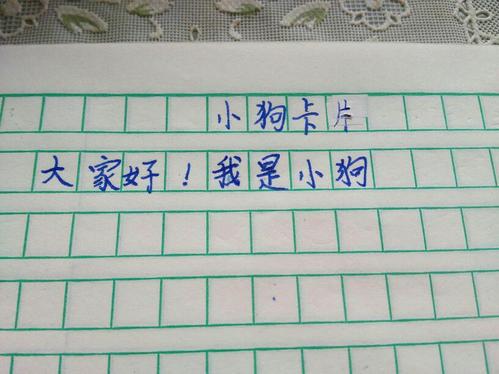 小狗卡片
大家好！我是小狗